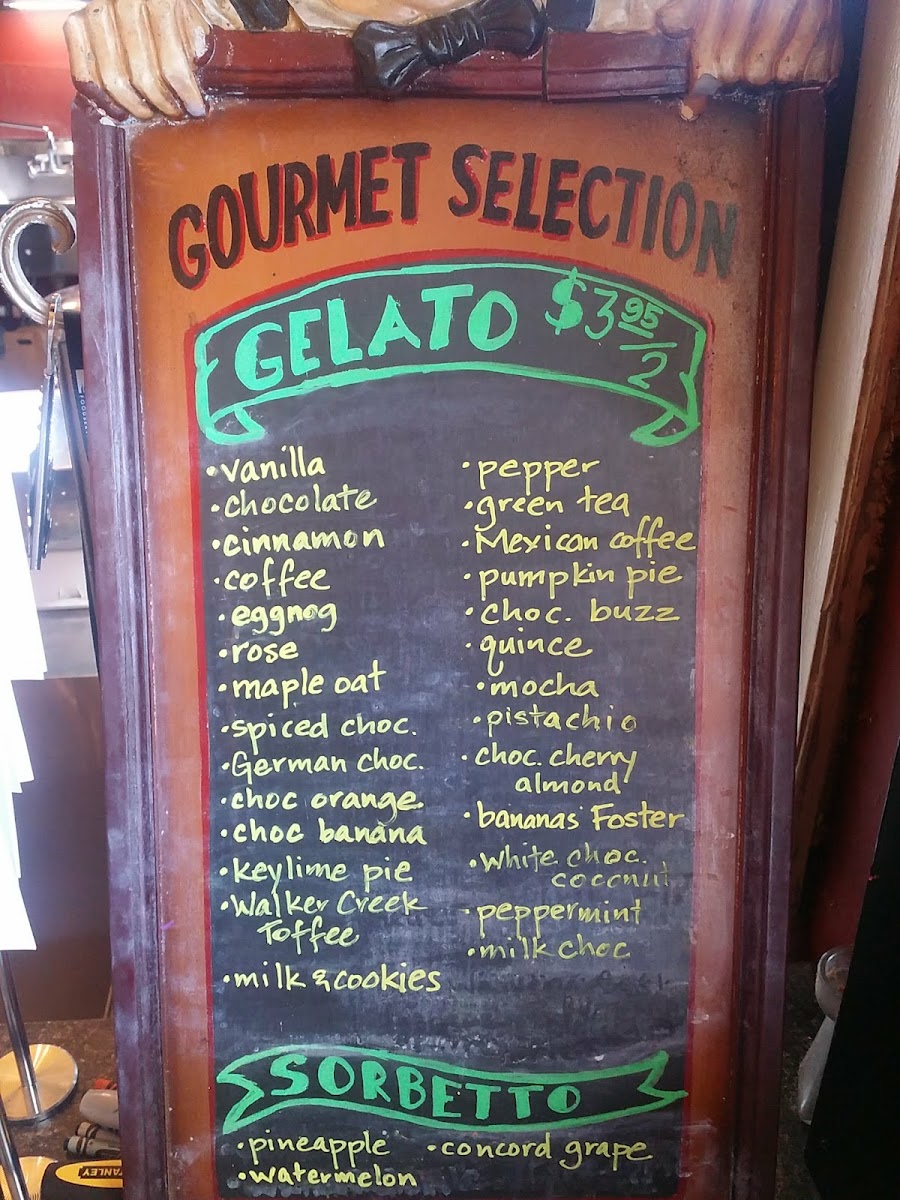 GOURMET SELECTION
GELATO $3 95/2
·vanilla
·chocolate
·cinnamon
·coffee
·eggnog
·rose
·maple oat
·spiced choc.
·German choc.
·choc orange
·choc banana
·keylime pie
·Walker Creek
Toffee
·milk & cookies
·pepper
·green tea
·Mexican coffee
·pumpkin pie
·choc. buzz
·quince
·mocha
·pistachio
·choc. cherry
almond
·bananas Foster
·White choc.
coconut
·peppermint
·milk choc
SORBETTO
·pineapple
·watermelon
·concord grape
STANLEY